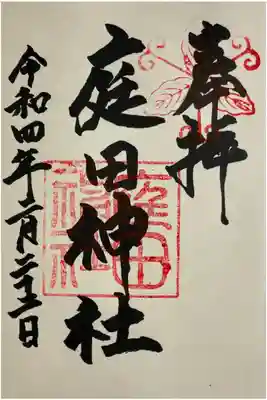 奉拝
庭田神社
令和四年二月二十三日
庭田
神社